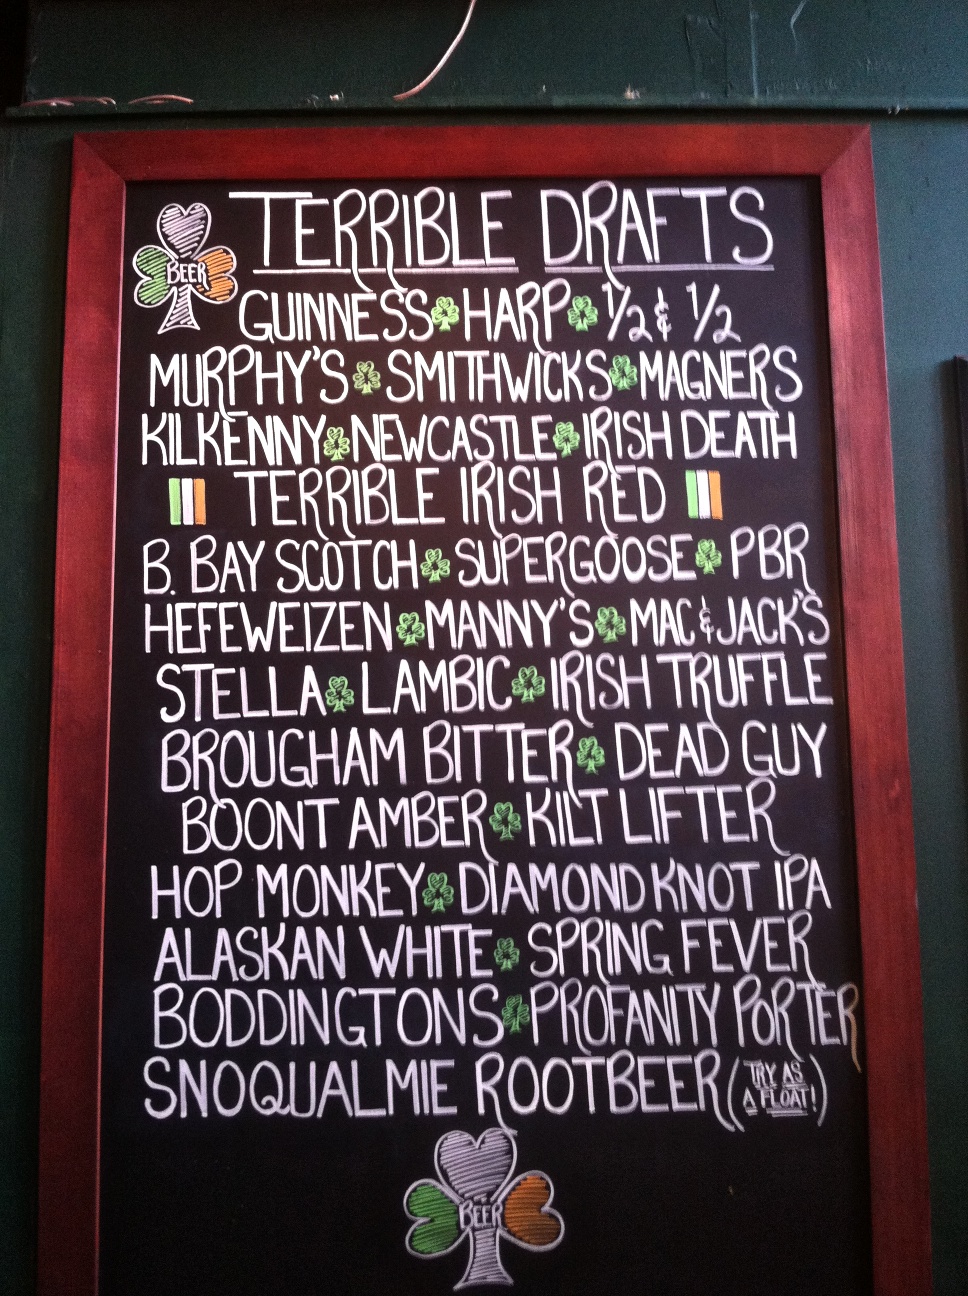 TERRIBLE DRAFTS
BEER
GUINNESS HARP 1/2 & 1/2
MURPHY'S SMITHWICKS MAGNERS
KILKENNY NEWCASTLE IRISH DEATH
TERRIBLE IRISH RED
B. BAY SCOTCH SUPERGOOSE PBR
HEFEWEIZEN MANNY'S MAC & JACK'S
STELLA LAMBIC IRISH TRUFFLE
BROUGHAM BITTER DEAD GUY
BOONT AMBER KILT LIFTER
HOP MONKEY DIAMOND KNOT IPA
ALASKAN WHITE SPRING FEVER
BODDINGTONS PROFANITY PORTER
SNOQUALMIE ROOTBEER (TRY AS
A FLOAT!)
BEER